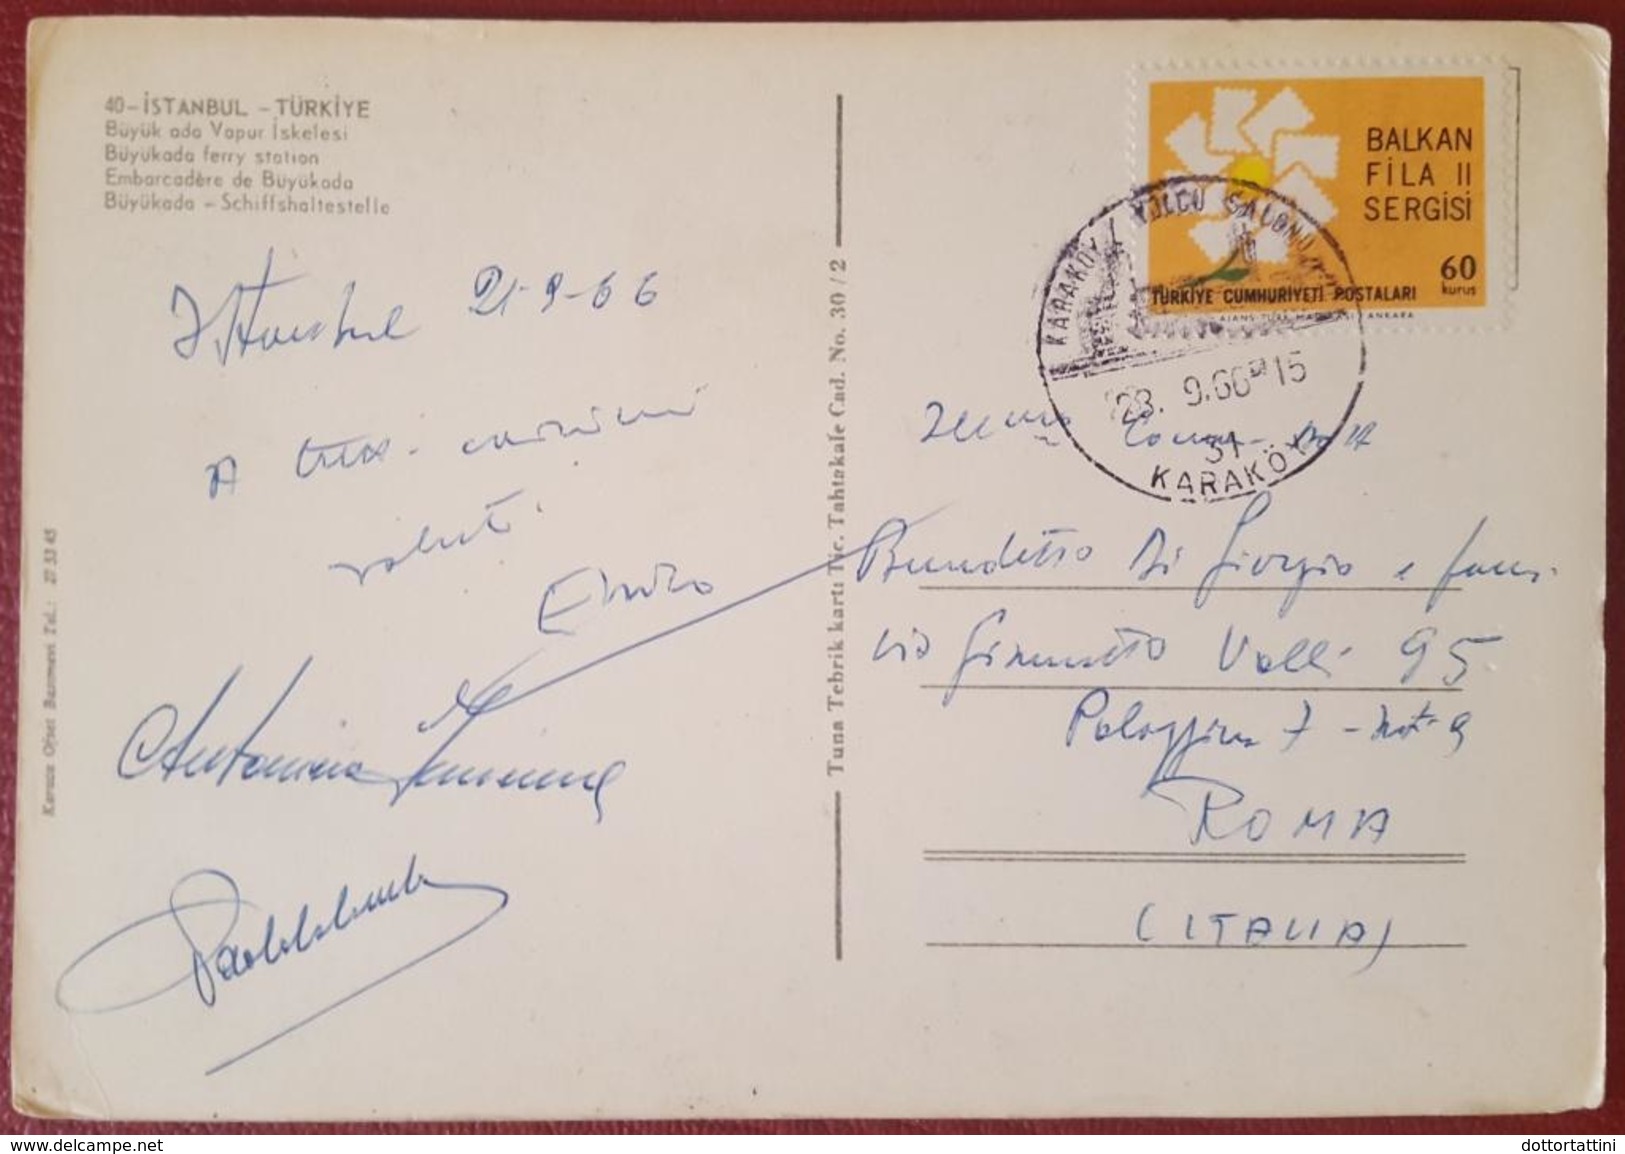 40-İSTANBUL - TÜRKİYE
Büyük ada Vapur İskelesi
Büyükada ferry station
Embarcadère de Büyükada
Büyükada - Schiffshaltestelle
Istanbul 21-9-66
A
saluti.
Enzo
Antonina
Karaca Ofset Basımevi Tel.: 27 53 45
Tuna Tebrik kartı Tic. Tahtakale Cad. No. 30/2
BALKAN
FİLA II
SERGİSİ
60
kurus
TÜRKİYE CUMHURİYETİ POSTALARI
AJANS-TÜRK MATBAASI ANKARA
KARAKÖY YOLCU SALONU
28. 9.66 15
31
KARAKÖY
Benedetto Di Giorgio e fam.
via Valli 95
Palazzina 7 - int 9
ROMA
(ITALIA)
www.delcampe.net
dottortattini